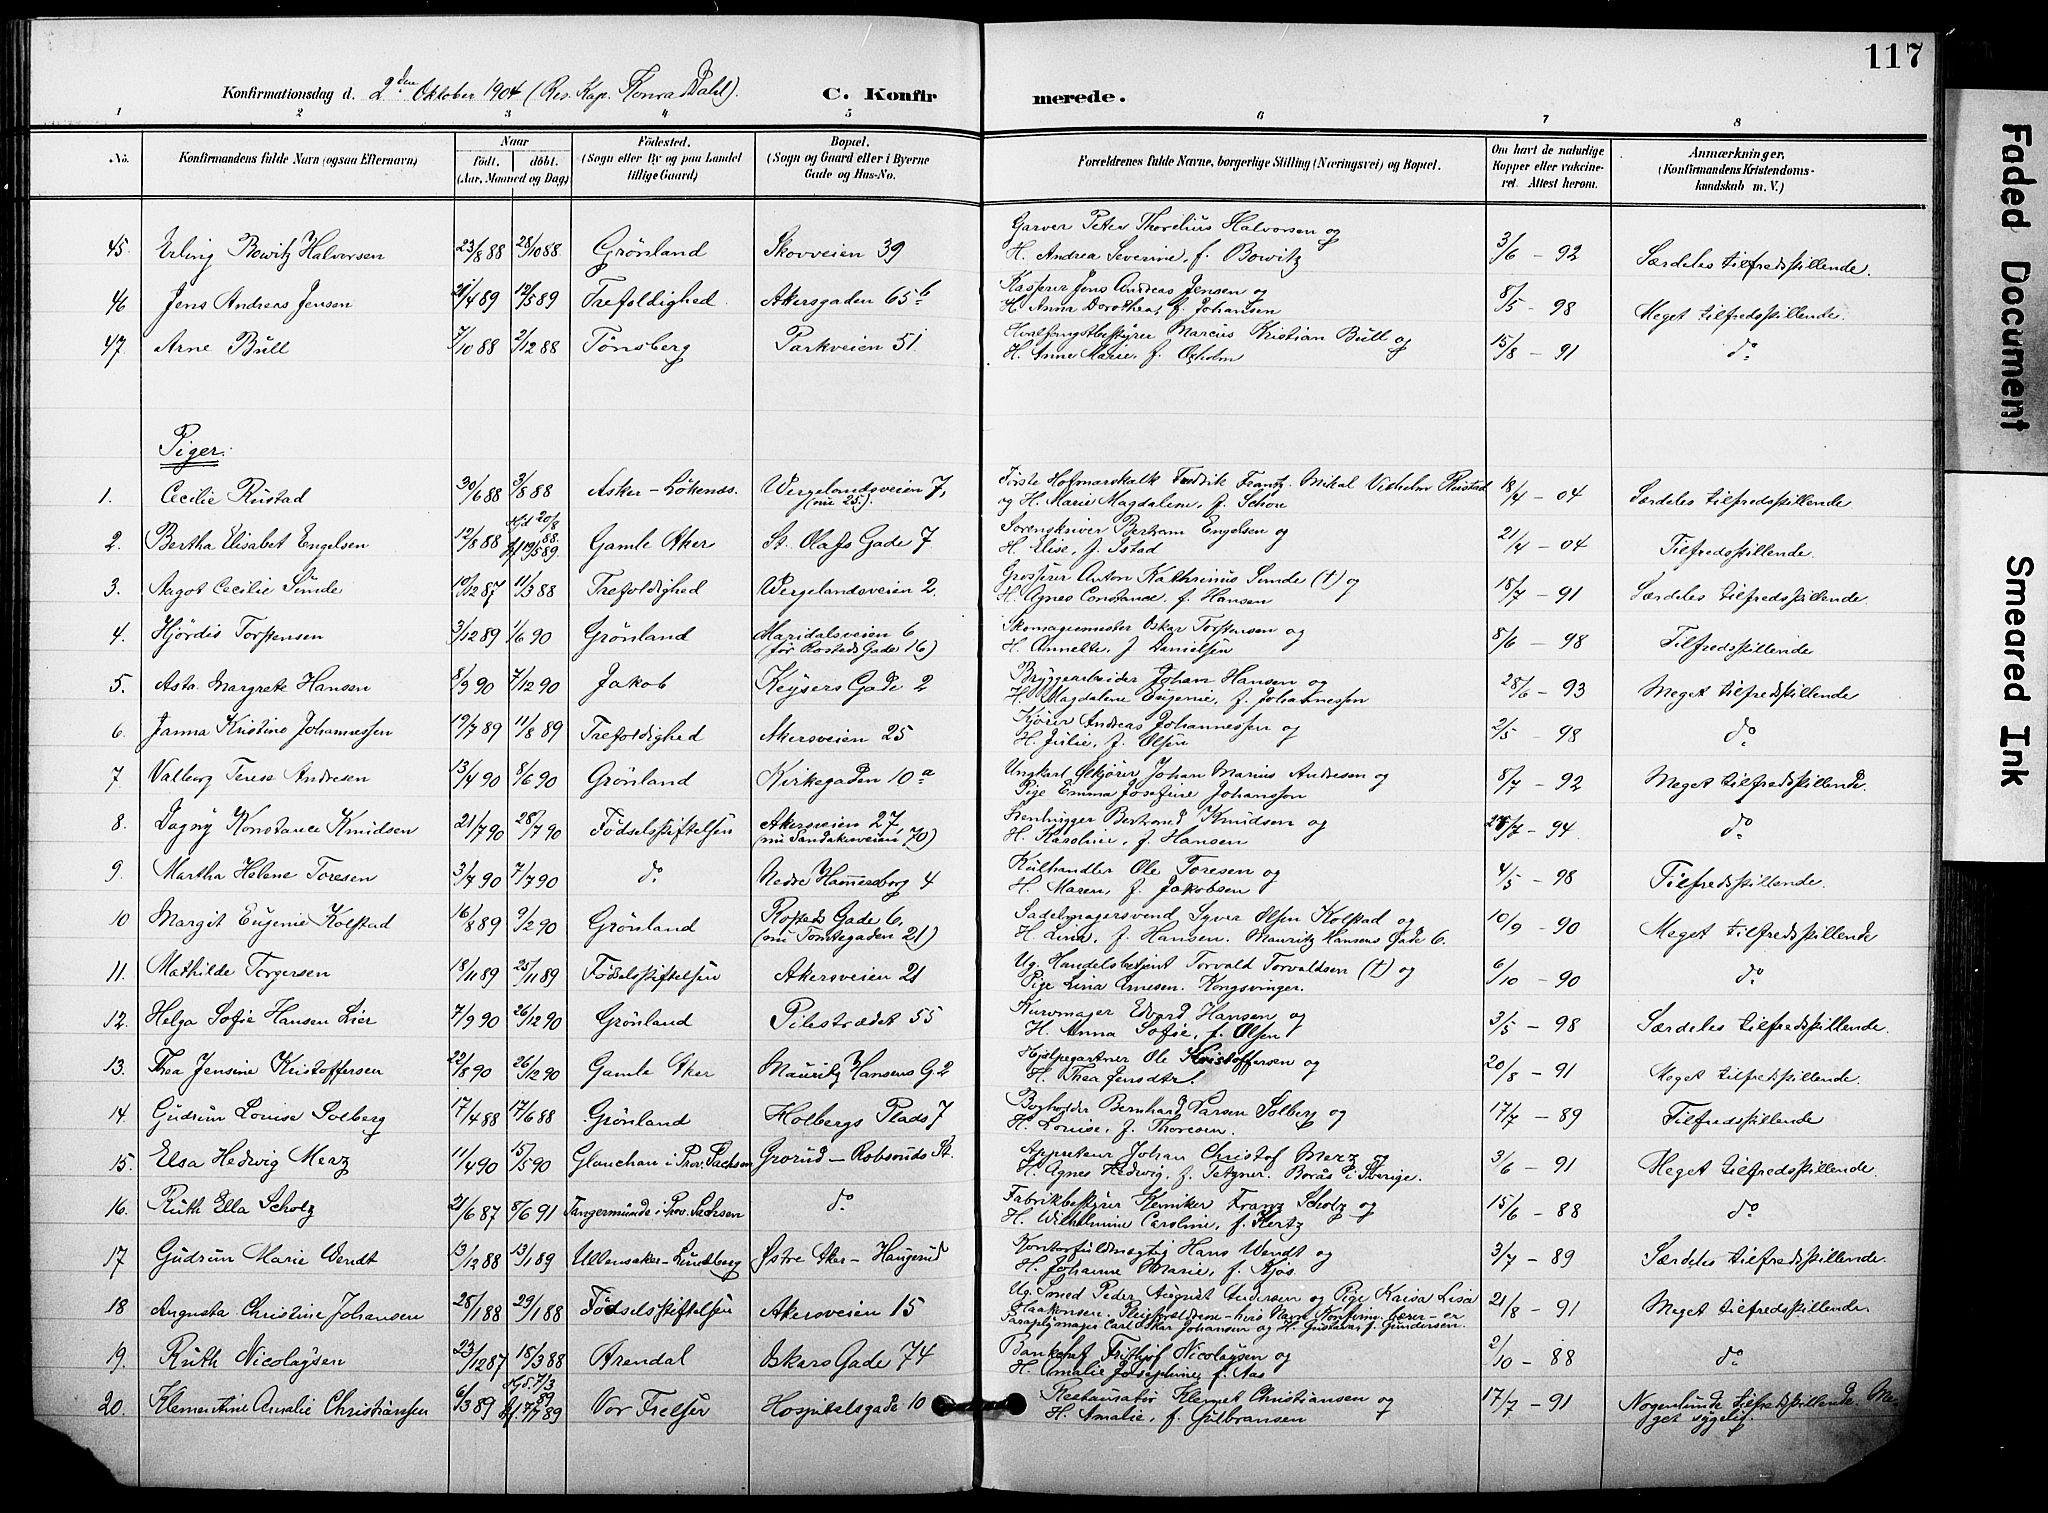 117
Konfirmationsdag d. 2den Oktober 1904 (Res. Kap. Konrad Dahl). C. Konfirmerede.
1 2 3 4 5 6 7 8
No. Konfirmandens fulde Navn (ogsaa Efternavn) Naar født, døbt. (Aar, Maaned og Dag) Fødested. (Sogn eller By og paa Landet tillige Gaard) Bopæl. (Sogn og Gaard eller i Byerne Gade og Hus-No. Forældrenes fulde Navne, borgerlige Stilling (Næringsvei) og Bopæl. Om havt de naturlige Kopper eller vakcineret. Attest herom. Anmærkninger. (Konfirmandens Kristendomskundskab m. V.)
45. Erling Bowitz Halvorsen 23/8 88 28/10 88 Grönland Skovveien 39 Garver Peter Thorelius Halvorsen og H. Andrea Severine, f. Bowitz 3/6 - 92 Særdeles tilfredsstillende.
46 Jens Andreas Jensen 21/4 89 12/5 89 Trefoldighed Akersgaden 65b Kasserer Jens Andreas Jensen og H. Anna Dorothea, f. Johansen 8/5 - 98 Meget tilfredsstillende.
47 Arne Bull 7/10 88 2/12 88 Tönsberg Parkveien 51 Hvalfangstbestyrer Marcus Kristian Bull og H. Anne Marie, f. Oxholm 15/8 - 91 do
Piger.
1. Cecilie Rustad 30/6 88 3/8 88 Asker - Lökenes. Wergelandsveien 7, (nu 25). Første Hofmarskalk Fredrik Frantz Mikal Vilhelm Rustad og H. Marie Magdalene, f. Schou 18/4 - 04 Særdeles tilfredsstillende
2. Bertha Elisabet Engelsen 12/8 88 Hjd 20/8 88. St. Olafs Gade 7 Gamle Aker Sorenskriver Bertram Engelsen og H. Elise, f. Istad 21/4 - 04 Tilfredsstillende.
3. Aagot Cecilie Sunde 10/12 87 11/3 88 Trefoldighed Wergelandsveien 2. Grosserer Anton Kathrinus Sunde (†) og H. Agnes Constance, f. Hansen 18/7 - 91 Særdeles tilfredsstillende.
4. Hjördis Torstensen 3/12 89 1/6 90 Grönland Maridalsveien 6 (før Rosteds Gade 16) Skomagermester Oskar Torstensen og H. Annette, f. Danielsen 8/6 - 98 Tilfredsstillende
5. Asta Margrete Hansen 8/9 90 7/12 90 Jakob Keysers Gade 2 Bryggearbeider Johan Hansen og H. Magdalene Eugenie, f. Johannessen 28/6 - 93 Meget tilfredsstillende
6. Janna Kristine Johannessen 19/7 89 11/8 89 Trefoldighed Akersveien 25 Kjører Andreas Johannessen og H. Julie, f. Olsen 2/5 - 98 do
7 Valborg Terese Andresen 13/4 90 8/6 90 Grönland Kirkegaden 10a Ungkarl Ølkjører Johan Marius Andresen og Pige Emma Josefine Johansson 8/7 - 92 Meget tilfredsstillende.
8. Dagny Konstance Knudsen 21/7 90 28/7 90 Födselsstiftelsen Akersveien 27, (nu Sandakerveien 70) Stenhugger Bertrand Knudsen og H. Karoline, f. Hansen 28/7 - 94 do
9. Martha Helene Toresen 3/7 90 7/7 90 do Nedre Hammersborg 4 Kulhandler Ole Toresen og H. Maren, f. Jakobsen 4/5 - 98 Tilfredsstillende.
10 Margit Eugenie Kolstad 16/8 89 9/2 90 Grönland Rosteds Gade 6, (nu Tomtegaden 21) Sadelmagersvend Syver Olsen Kolstad og H. Lina, f. Hansen. Mauritz Hansens Gade 6. 10/9 - 90 Meget tilfredsstillende
11. Mathilde Torgersen 18/11 89 25/11 89 Födselsstiftelsen Akersveien 21 Ug. Handelsbetjent Torvald Torvaldsen (†) og Pige Lina Arnesen. Kongsvinger. 6/10 - 90 do
12. Helga Sofie Hansen Lier 7/9 90 26/12 90 Grönland Pilestrædet 55 Kurvmager Edvard Hansen og H. Anna Sofie, f. Olsen 3/5 - 98 Særdeles tilfredsstillende.
13. Thea Jensine Kristoffersen 22/8 90 26/12 90 Gamle Aker Mauritz Hansens G. 2 Hjælpegartner Ole Kristoffersen og H. Thea Jensdtr. 20/8 - 91 Meget tilfredsstillende.
14. Gudrun Louise Solberg 17/4 88 17/6 88 Grönland Holbergs Plads 7 Bogholder Bernhard Larsen Solberg og H. Louise, f. Thoresen. 17/7 - 89 Tilfredsstillende
15. Elsa Hedwig Merz 11/4 90 15/5 90 Glauchau i Prov. Sachsen Grorud - Robsruds St. Appretur Johan Christof Merz og H. Agnes Hedwig, f. Tetzner. Borås i Sverige. 3/6 - 91 Meget tilfredsstillende.
16. Ruth Ella Scholz 21/6 87 8/6 91 Tangermünde i Prov. Sachsen do Fabrikbestyrer Kemiker Franz Scholz og H. Wilhelmine Caroline, f. Hertz 15/6 - 88 do
17 Gudrun Marie Wendt 13/12 88 13/1 89 Ullensaker - Lundberg Østre Aker - Haugerud Kontorfuldmægtig Hans Wendt og H. Johanne Marie, f. Kjos. 3/7 - 89 Særdeles tilfredsstillende.
18 Augusta Christine Johansen 25/1 88 29/1 88 Födselsstiftelsen Akersveien 15 Ug. Smed Peder August Andersen og Pige Kaisa Lisa Haakonsen. Pleieforældrene - hvis Navn Konfirm. bærer - er Paraplymager Carl Oskar Johansen og H. Gustava, f. Gundersen. 21/8 - 91 Meget tilfredsstillende.
19. Ruth Nicolaysen 23/12 87 18/3 88 Arendal Oskars Gade 74 Bankchef Fritjof Nicolaysen og H. Amalie Josephine, f. Aas 2/10 - 88 do
20. Klementine Amalie Christiansen 6/3 89 Hjd. 7/3 89 Vor Frelser Hospitalsgade 10 Restauratør Klemet Christiansen og H. Amalie, f. Gulbransen 17/7 - 91 Nogenlunde tilfredsstillende. Meget sygelig.
Faded Document
Smeared Ink